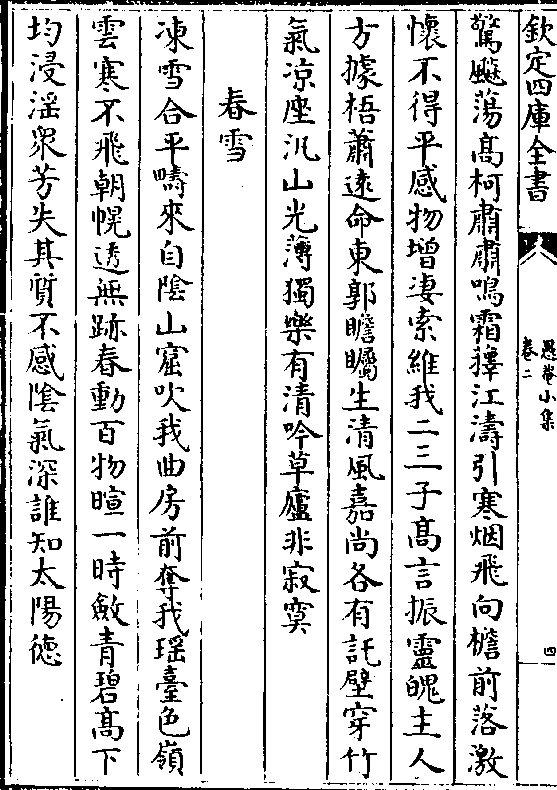 欽定四庫全書
愚菴小集
卷二
四
驚飈蕩髙柯肅肅鳴霜蘀江濤引寒烟飛向檐前落激
懷不得平感物增凄索維我二三子髙言振靈魄主人
方據梧蕭逺命東郭瞻矚生清風嘉尚各有託壁穿竹
氣凉座汎山光薄獨樂有清吟草廬非寂寞
春雪
凍雪合平疇來自陰山窟吹我曲房前奪我瑶臺色嶺
雲寒不飛朝幌透無跡春動百物暄一時斂青碧髙下
均浸淫衆芳失其質不感陰氣深誰知太陽徳